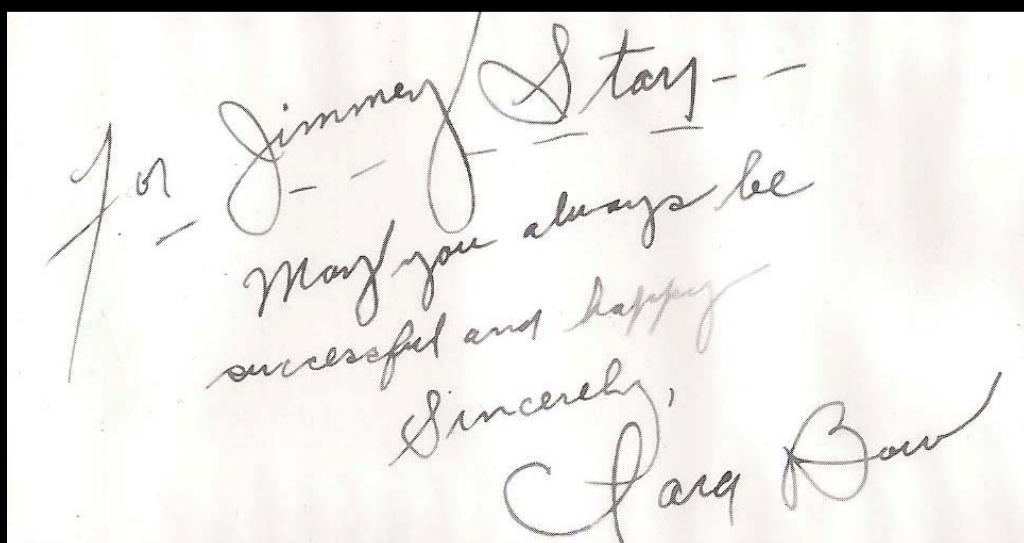 For Jimmey Starr - -
May you always be
successful and happy
Sincerely,
Clara Bow